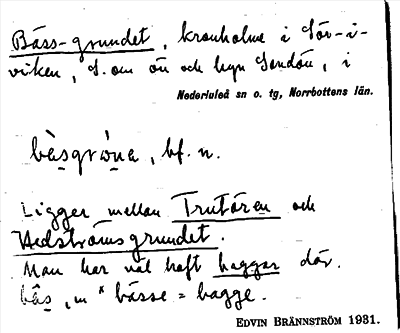 Bäss-grundet, kronholme i Sör-i-
viken, S. om ön och byn Sandön, i
Nederluleå sn o. tg, Norrbottens län.
bàsgrὼna, bf. n.
Ligger mellan Trutören och
Hedströmsgrundet.
Man har väl haft baggar där.
bås, m * bässe = bagge.
EDVIN BRÄNNSTRÖM 1931.